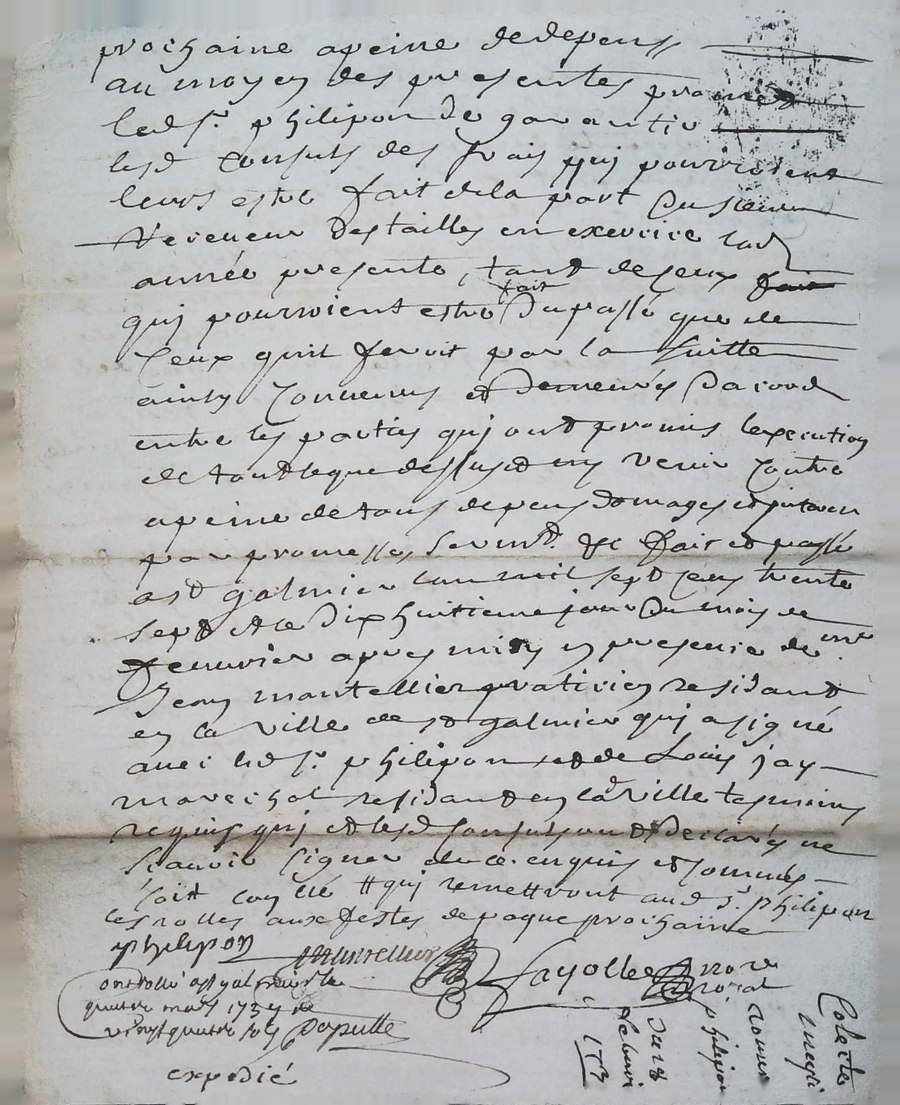 prochaine a peine de depens
au moyen des presentes promet
led sr. philipon de garantir
lesd consuls des frais qui pourroient
leurs estre fait de la part du sieur
Receveur des tailles en exercice lad
année presente, tant de ceux fait
fait
qui pourroient estre du passé que de
ceux quil feroit par la suitte
ainsy convenus et demeurés dacord
entre les parties qui ont promis lexecution
de tout ce que dessus et ny venir contre
a peine de tous depens domages et
par promesses serment &c fait et passé
a st galmier lan mil sept cens trente
sept et le dix huitieme jour du mois de
feuvrier apres midy en presence de mre
Jean mantellier praticien residant
en la ville de st galmier qui a signé
avec led sr. philipon et de Louis jay
marechal residant en lad ville tesmoins
requis qui et lesd consuls ont declarés ne
scavoir signer de ce enquis et sommés
soit # qui remettront aud sr. philipon
les rolles aux festes de paque prochaine
philipon mantellier fayolle nore
royal
controllé a st galmier le
quatre mars 1737 re
vingt quatre sols
expedié
philipon